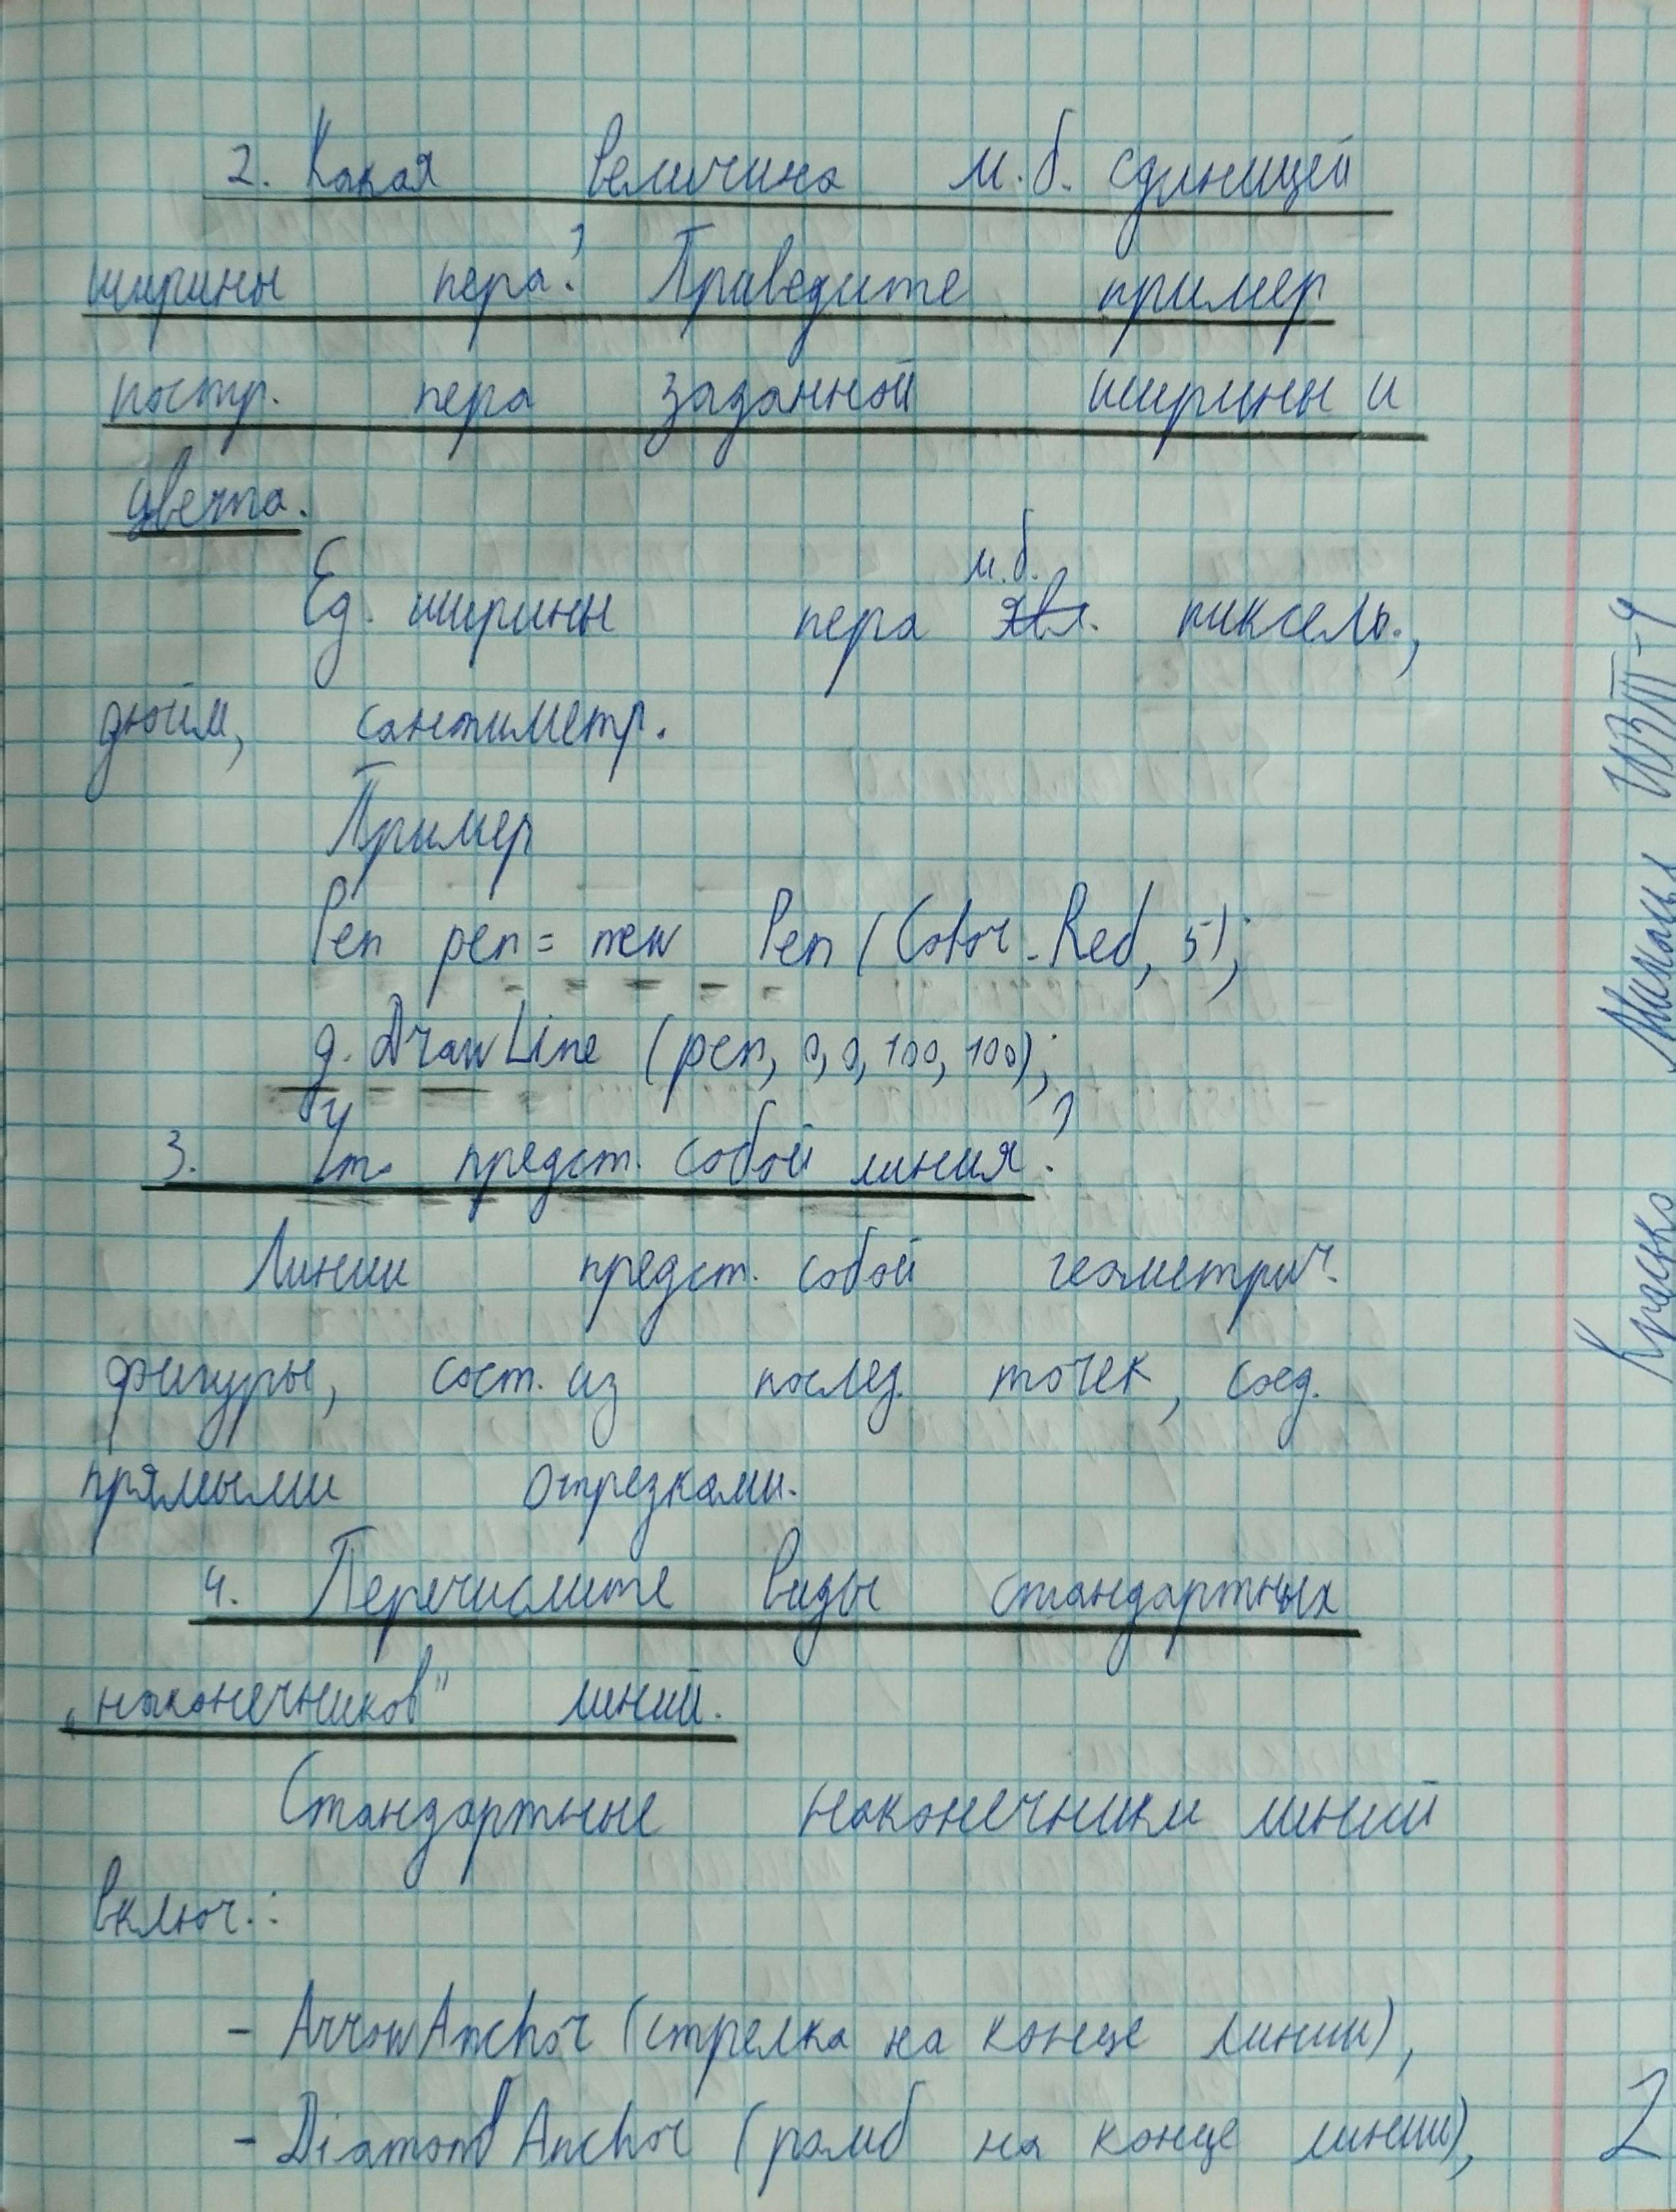 2. Какая величина м.б. единицей
ширины пера? Приведите пример
постр. пера заданной ширины и
цвета.
Ед. ширины пера м.б. явл. пиксель.,
дюйм, сантиметр.
Пример
Pen pen = new Pen (Color.Red, 5);
g.DrawLine (pen, 0, 0, 100, 100);
3. Что предст. собой линия?
Линии предст. собой геометрич.
фигуры, сост. из послед. точек, соед.
прямыми отрезками.
4. Перечислите виды стандартных
„наконечников" линий.
Стандартные наконечники линий
включ.:
- ArrowAnchor (стрелка на конце линии),
- DiamondAnchor (ромб на конце линии),
Михаил
2